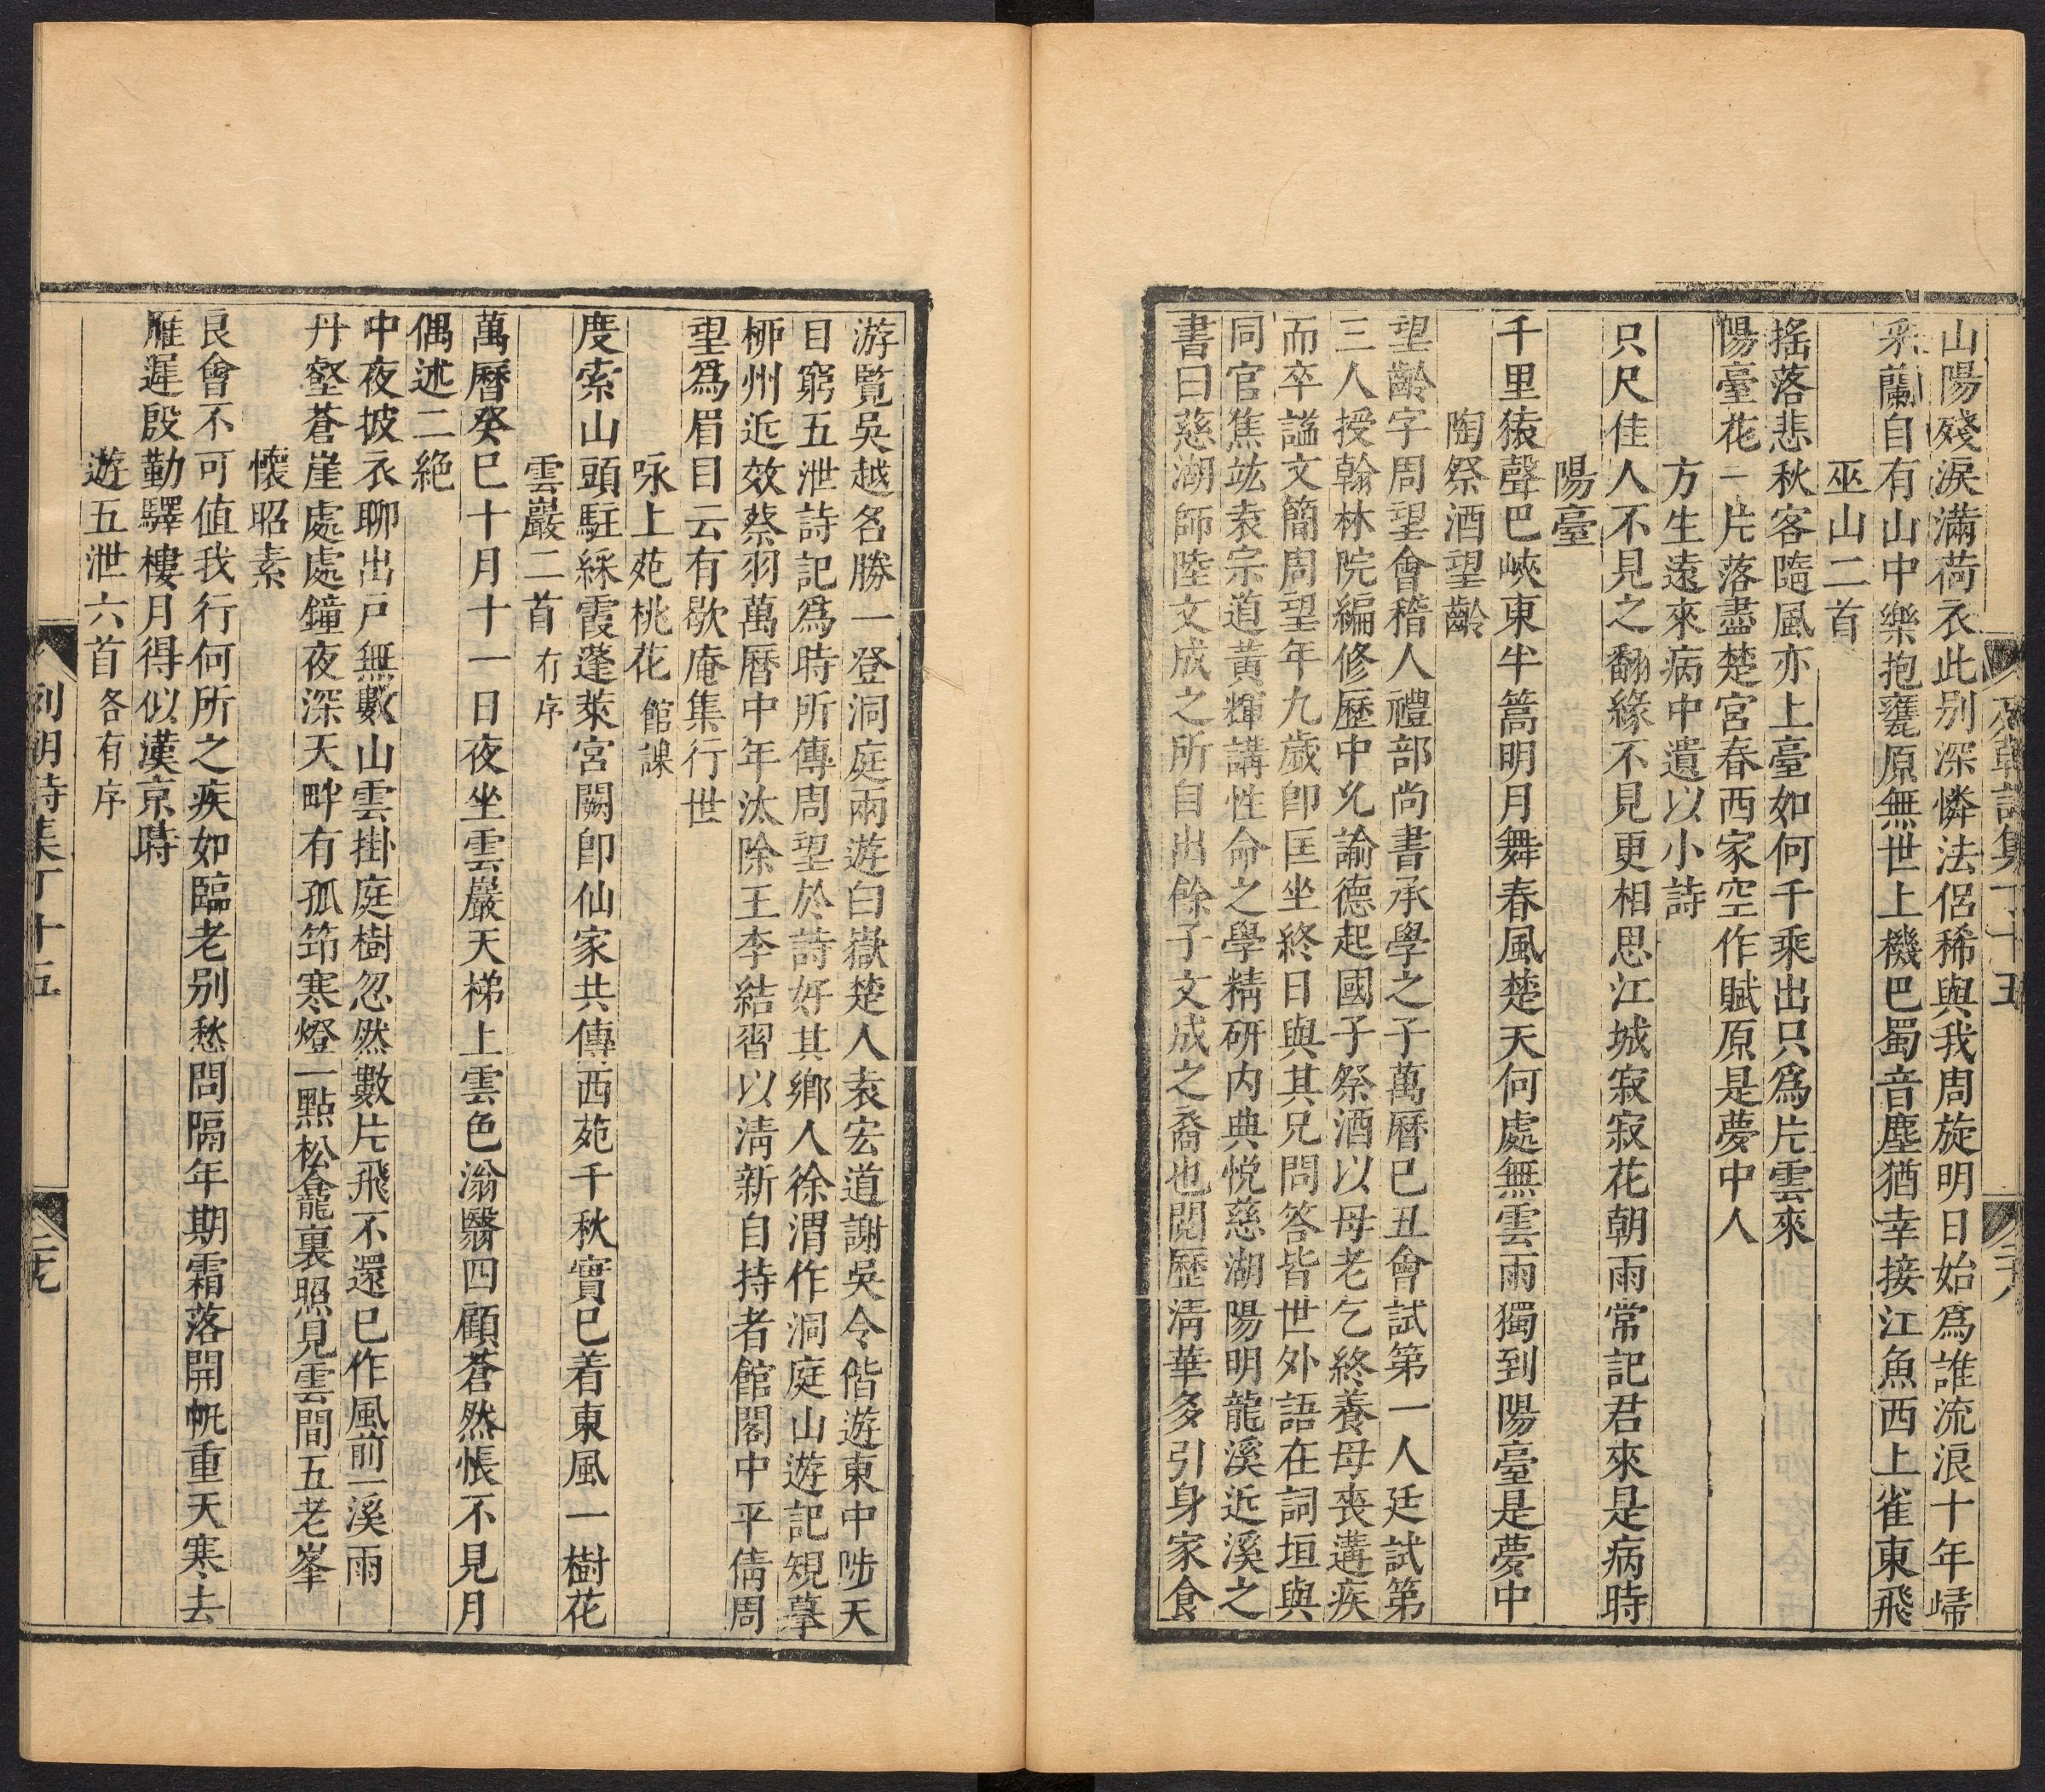 山陽殘淚滿荷衣此别深憐法侣稀與我周旋明日始爲誰流浪十年歸
采蘭自有山中樂抱甕原無世上機巴蜀音塵猶幸接江魚西上雀東飛
巫山二首
搖落悲秋客隨風亦上臺如何千乘出只爲片雲來
陽臺花一片落盡楚宮春西家空作賦原是夢中人
方生遠來病中遺以小詩
只尺佳人不見之翻緣不見更相思江城寂寂花朝雨常記君來是病時
陽臺
千里猿聲巴峽東半篙明月舞春風楚天何處無雲雨獨到陽臺是夢中
陶祭酒望齡
望齡字周望會稽人禮部尚書承學之子萬曆巳丑會試第一人廷試第
三人授翰林院編修歷中允諭德起國子祭酒以母老乞終養母喪遘疾
而卒謚文簡周望年九歲卽匡坐終日與其兄問答皆世外語在詞垣與
同官焦竑袁宗道黃輝講性命之學精研内典悅慈湖陽明龍溪近溪之
書曰慈湖師陸文成之所自出餘子文成之裔也閱歷淸華多引身家食
游覽吳越名勝一登洞庭兩遊白嶽楚人袁宏道謝吳令偕遊東中陟天
目窮五泄詩記爲時所傳周望於詩好其鄉人徐渭作洞庭山遊記規摹
柳州近效蔡羽萬曆中年汰除王李結習以淸新自持者館閣中平倩周
望爲眉目云有歇庵集行世
咏上苑桃花 館課
度索山頭駐綵霞蓬萊宮闕卽仙家共傳西苑千秋實巳着東風一樹花
雲巖二首 有序
萬曆癸巳十月十一日夜坐雲巖天梯上雲色滃翳四顧蒼然悵不見月
偶述二絕
中夜披衣聊出戸無數山雲掛庭樹忽然數片飛不還巳作風前一溪雨
丹壑蒼崖處處鐘夜深天畔有孤筇寒燈一點松龕裏照見雲間五老峯
懷昭素
良會不可値我行何所之疾如臨老别愁問隔年期霜落開帆重天寒去
雁遲殷勤驛樓月得似漢京時
遊五泄六首 各有序
列朝詩集丁十五
二十九